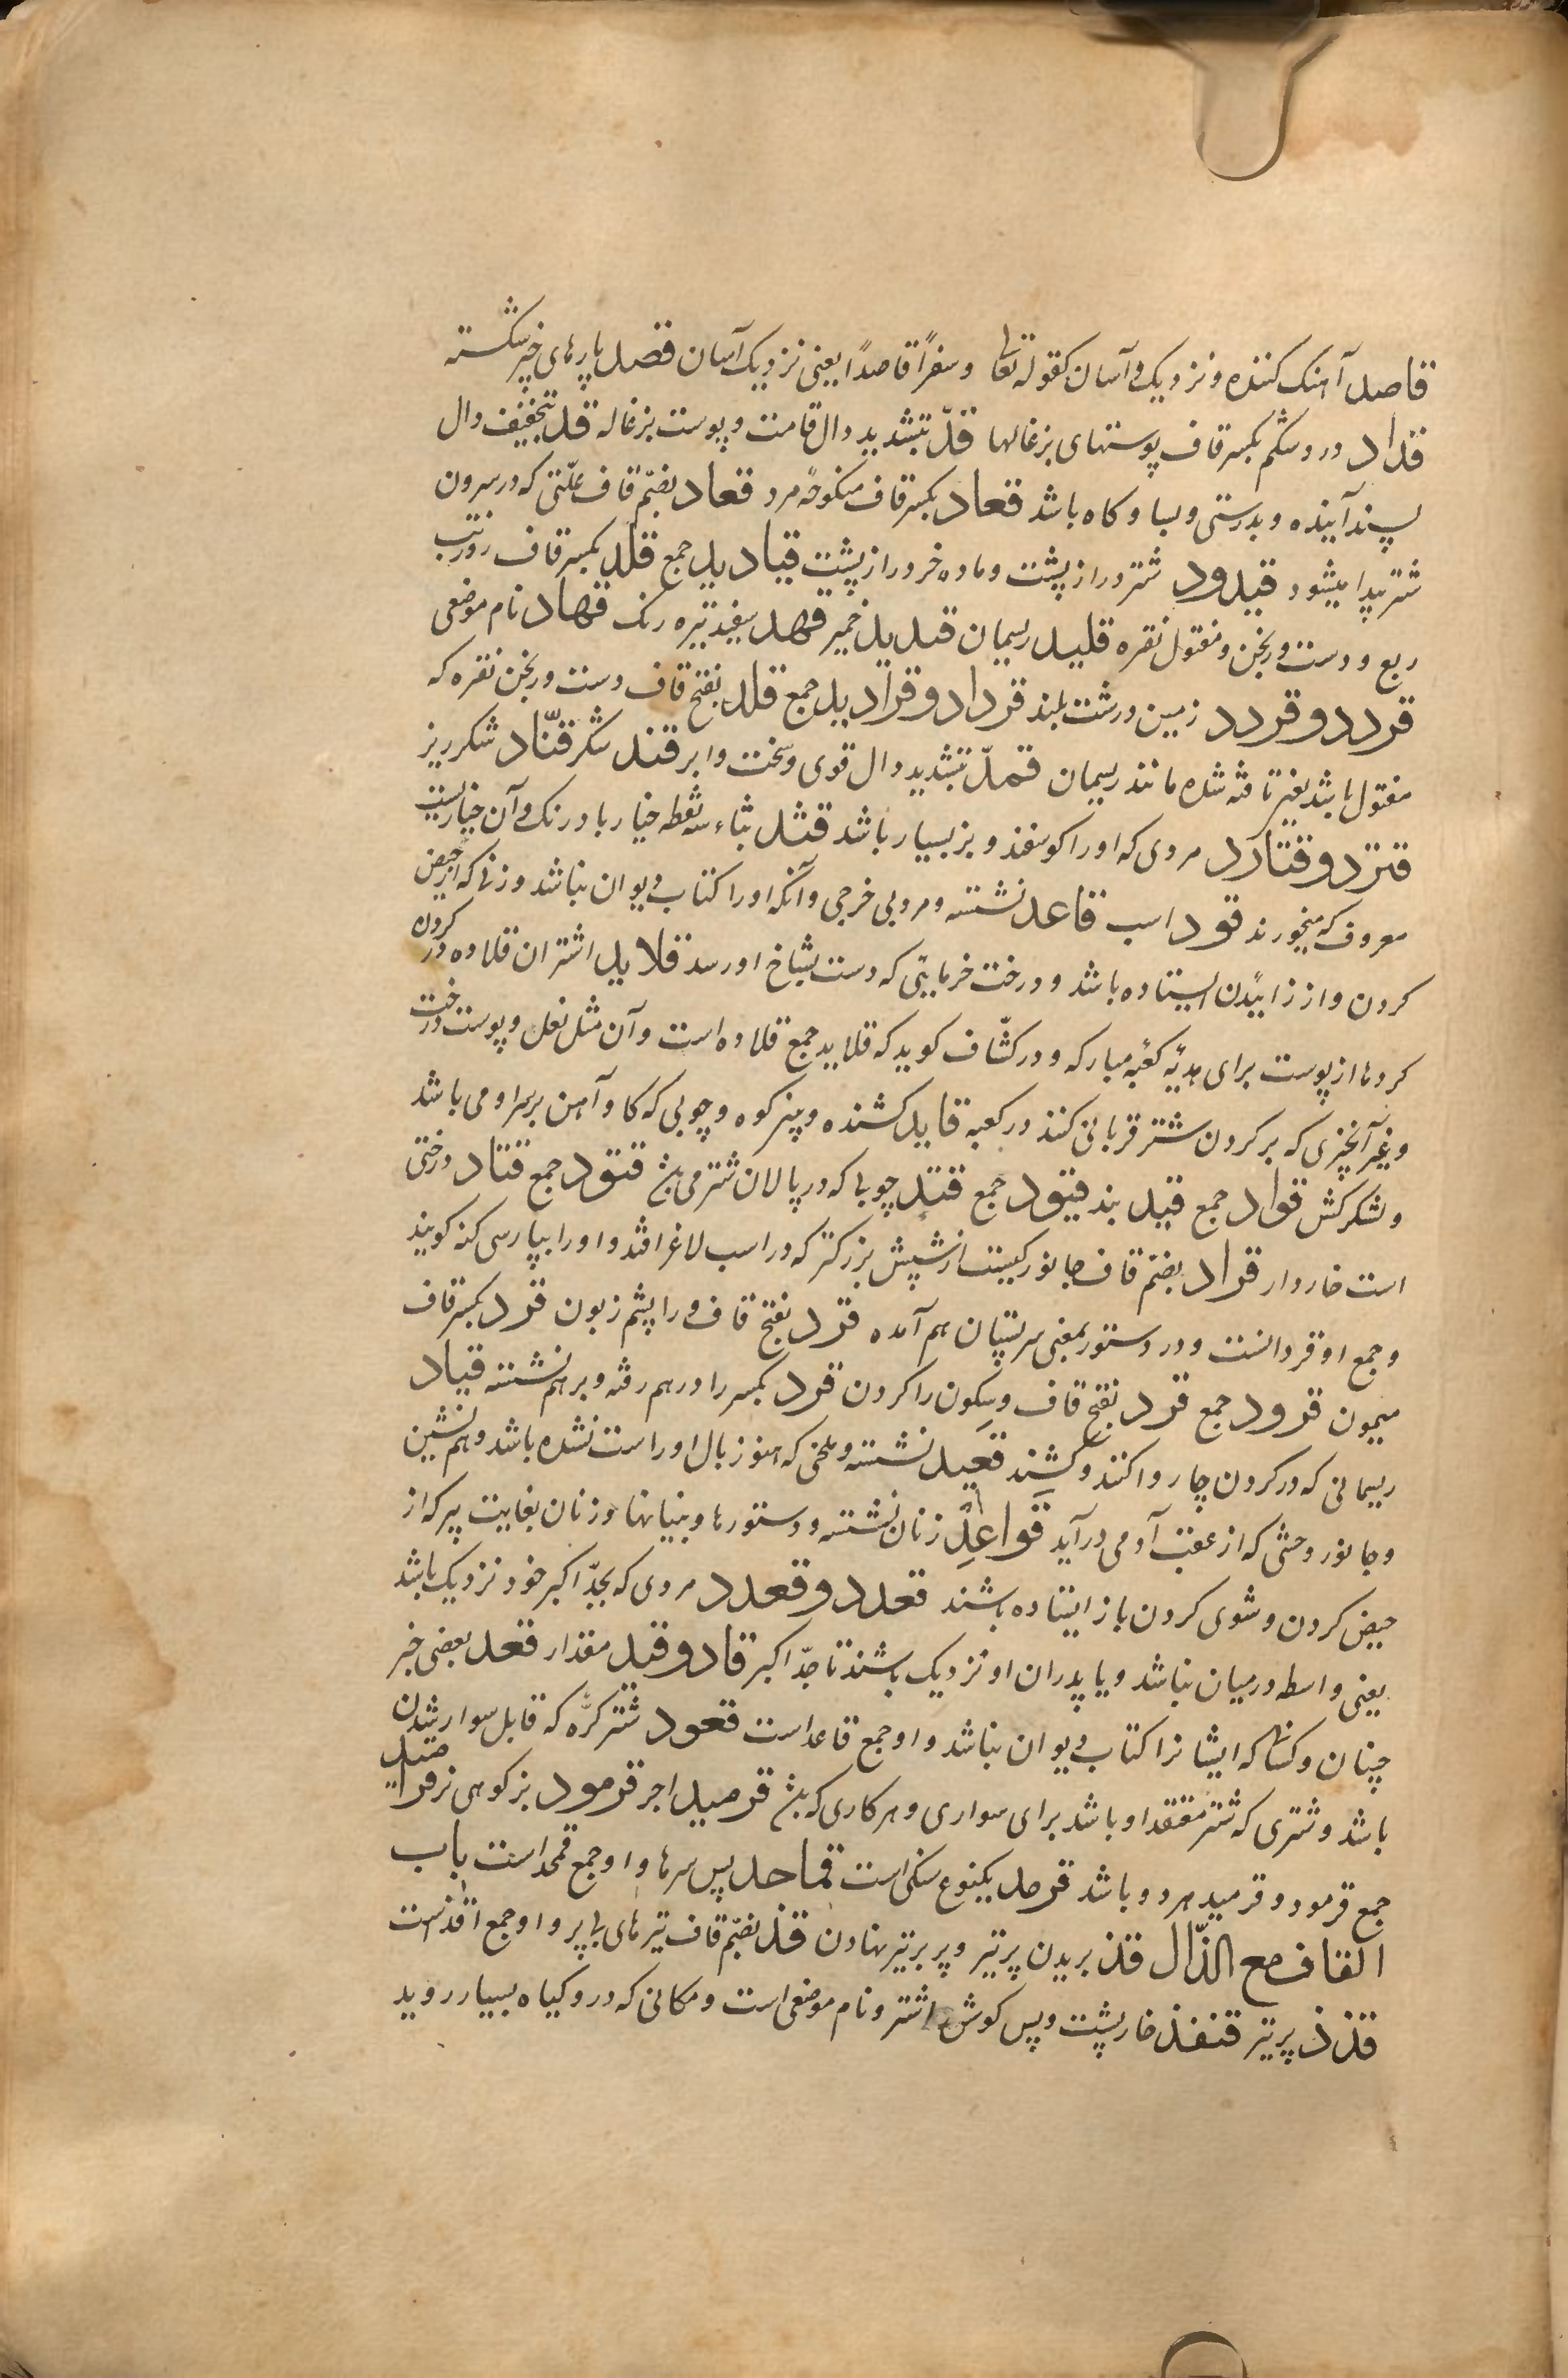 قاصد آهنک کننده و نزدیک و آسان کقوله تعا وسفرًا قاصدًا یعنی نزدیک آسان قصد پارهای خپر شکسته
قداد درد شکم بکسر قاف پوستهای بزغالها قدّ بتشدید دال قامت و پوست بزغاله قد بتخفیف دال
پسندآینده و بدرستی و بسا و کاه باشد قعاد بکسر قاف منکوحهٔ مرد قعاد بضمّ قاف علّتی که در سرون
شتر پیدا میشود قیدود شتر دراز پشت و ماده خر دراز پشت قیادید جمع قلد بکسر قاف روز تب
ربع و دست ورنجن و مفتول نقره قلید ریسمان قدید خمیر قهد سفید تیره رنک قهاد نام موضعی
قردد و قردد زمین درشت بلند قرداد و قرادید جمع قلد بفتح قاف دست ورنجن نقره که
مفتول باشد بغیر تافته شده مانند ریسمان قمدّ بتشدید دال قوی و سخت و ابر قند شکر قنّاد شکرریز
قترد و قتارد مردی که او را کوسفند و بز بسیار باشد قثد بثاء سه نقطه خیار بادرنک و آن خیاریست
معروف که میخورند قود اسب قاعد نشسته و مرد بی خرجی و آنکه او را کتاب دیوان نباشد و زنی که از حیض
کردن و از زائیدن ایستاده باشد و درخت خرمایی که دست بشاخ او رسد قلاید اشتران قلاده در کردن
کردها از پوست برای هدیهٔ کعبهٔ مبارکه و در کشّاف کوید که قلاید جمع قلاده است و آن مثل نعل و پوست درخت
و غیر آنچیزی که بر کردن شتر قربانی کنند در کعبه قاید کشنده و پنر کوه و چوبی که کاو آهن بر سر او می باشد
و لشکرکش قواد جمع قید بند قیود جمع قتد چوبی که در پالان شتر می بشد قتود جمع قتاد درختی
است خاردار قراد بضمّ قاف جانورکیست از شپش بزرکتر که در اسب لاغر افتد و او را بپارسی کنه کویند
و جمع او قردانست و در دستور بمعنی سر پستان هم آمده قرد بفتح قاف و را پشم زبون قرد بکسر قاف
میمون قرود جمع قرد بفتح قاف و سکون را کردن قرد بکسر را درهم رفته و برهم نشسته قیاد
ریسمانی که در کردن چاروا کنند و کشند قعید نشسته و ملخی که هنوز بال او راست نشده باشد و هم نشین
و جانور وحشی که از عقب آدمی درآید قواعد زنان نشسته و دستورها و بنیانها و زنان بغایت پیر که از
حیض کردن و شوی کردن باز ایستاده باشند قعدد و قعدد مردی که بجدّ اکبر خود نزدیک باشد
یعنی واسطه در میان نباشد و یا پدران او نزدیک باشند تا جدّ اکبر قاد و قید مقدار قعد بعضی خبر
چینان و کسانی که ایشانرا کتاب دیوان نباشد و او جمع قاعد است قعود شتر کرّه که قابل سوار شدن
باشد و شتری که شتر معتقد او باشد برای سواری و هر کاری که بشد قرمید اجر قرمود بز کوهی نر قرامید
جمع قرمود و قرمید هر دو باشد قرصد یکنوع سنکی است قماحد پس سرها و او جمع قمحد است باب
القاف مع الذّال قذ بریدن پر تیر و پر بر تیر نهادن قذ بضمّ قاف تیرهای بی پر و او جمع اقذ است
قذذ پر تیر قنفذ خارپشت و پس کوش اشتر و نام موضعی است و مکانی که در و کیاه بسیار روید